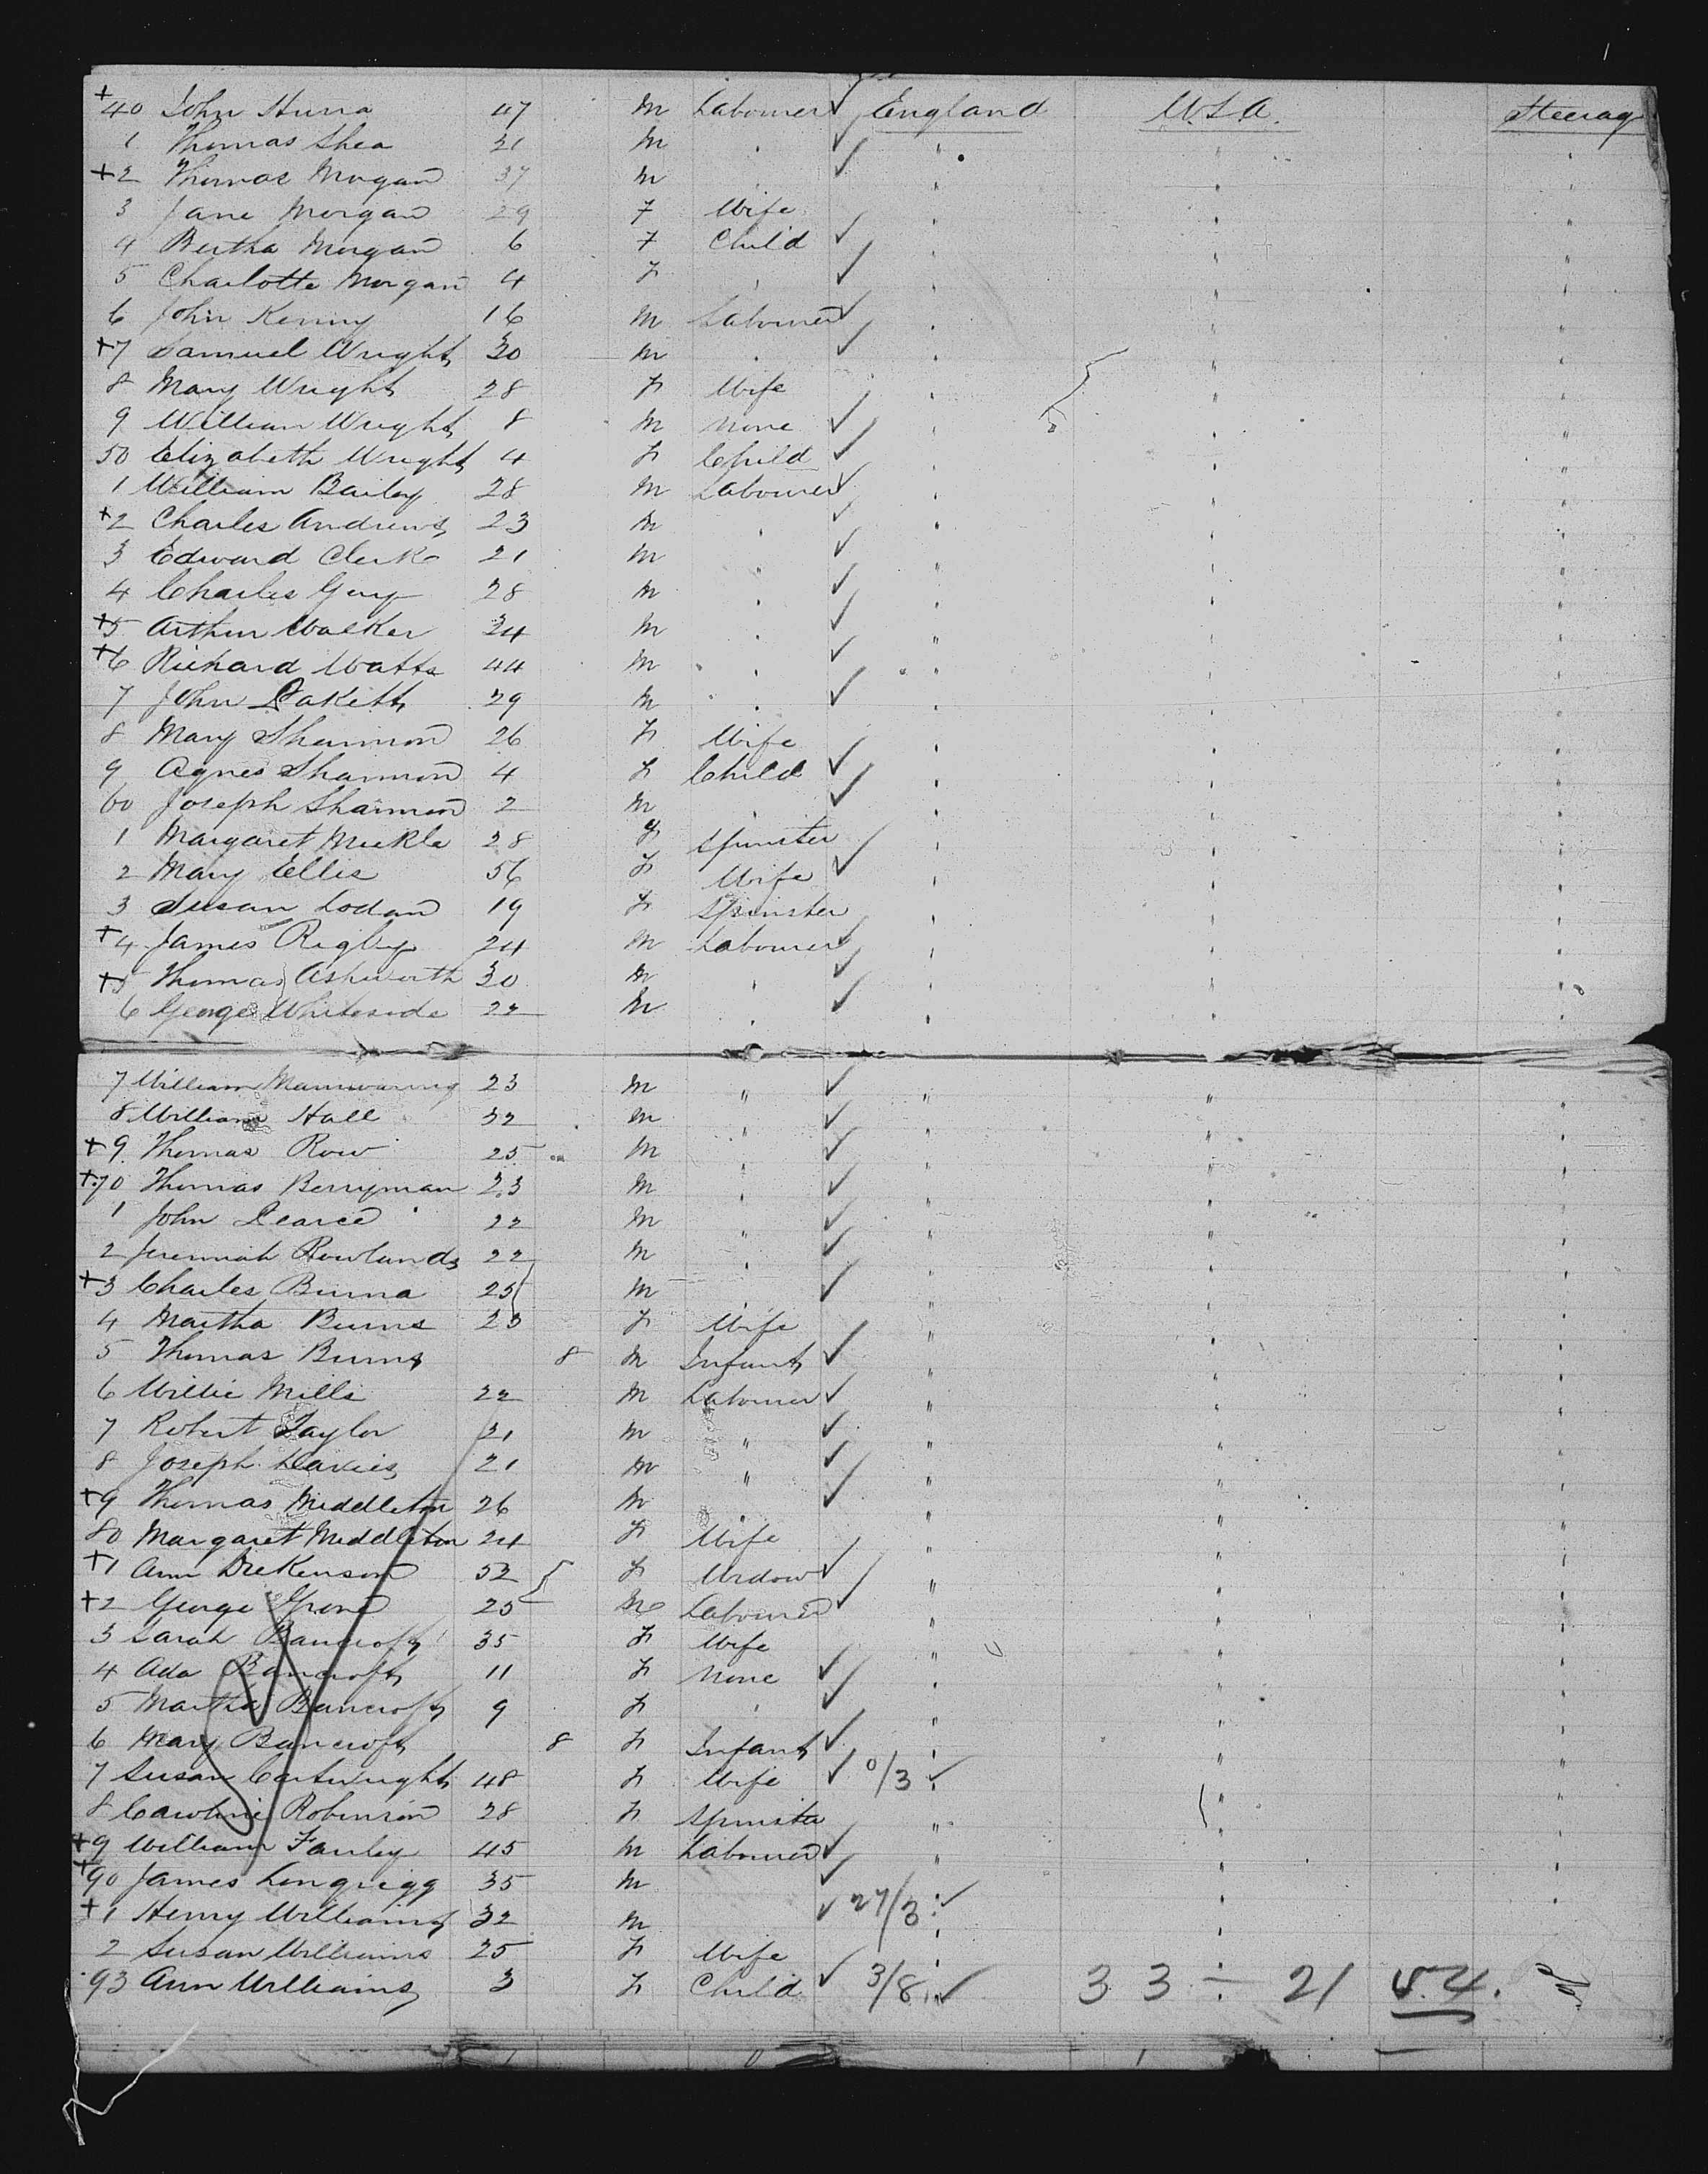 +40 John Hurra 47 M Labourer ✓ England U.S.A. Steerag
1 Thomas Shea 21 M " ✓ " " "
+2 Thomas Morgan 37 M ✓ " " "
3 Jane Morgan 29 F Wife " " "
4 Bertha Morgan 6 F Child ✓ " " "
5 Charlotte Morgan 4 F " ✓ " " "
6 John Kenny 16 M Labourer ✓ " " "
+7 Samuel Wright 30 M " ✓ " " "
8 Mary Wright 28 F Wife " " "
9 William Wright 8 M None ✓ " " "
50 Elizabeth Wright 4 F Child ✓ " " "
1 William Bailey 28 M Labourer ✓ " " "
+2 Charles Andrews 23 M " ✓ " " "
3 Edward Clerk 21 M " ✓ " " "
4 Charles 28 M " ✓ " " "
+5 Arthur Walker 34 M " ✓ " " "
+6 Richard Watts 44 M " ✓ " " "
7 John 29 M " ✓ " " "
8 Mary Shannon 26 F Wife " " "
9 Agnes Shannon 4 F Child ✓ " " "
60 Joseph Shannon 2 M " ✓ " " "
1 Margaret Meikle 28 F Spinster " " "
2 Mary Ellis 56 F Wife ✓ " " "
3 Susan Lodan 19 F Spinster " " "
+4 James Rigby 24 M Labourer ✓ " " "
+5 Thomas Ashworth 30 M " ✓ " " "
6 George Whiteside 22 M " ✓ " " "
7 William Mainwaring 23 M " ✓ " " "
8 William Hall 32 M " ✓ " " "
+9 Thomas Row 25 M " ✓ " " "
+70 Thomas Berryman 23 M " ✓ " " "
1 John Pearce 22 M " ✓ " " "
2 Jeremiah Rowlands 22 M " ✓ " " "
+3 Charles Burns 25 M " ✓ " " "
4 Martha Burns 23 F Wife " " "
5 Thomas Burns 8 M Infant ✓ " " "
6 Willie Mills 22 M Labourer ✓ " " "
7 Robert Taylor 21 M " ✓ " " "
8 Joseph Davies 21 M " ✓ " " "
+9 Thomas Middleton 26 M " ✓ " " "
80 Margaret Middleton 24 F Wife " " "
+1 Ann Dickenson 52 F Widow ✓ " " "
+2 George 25 M Labourer ✓ " " "
3 Sarah Bancroft 35 F Wife " " "
4 Ada Bancroft 11 F None ✓ " " "
5 Martha Bancroft 9 F " ✓ " " "
6 Mary Bancroft 8 F Infant ✓ " " "
7 Susan Cartwright 48 F Wife ✓ 0/3 ✓ " " "
8 Caroline Robinson 28 F Spinster " " "
+9 William Fanley 45 M Labourer ✓ " " "
+90 James Longrigg 35 M ✓ " " "
+1 Henry Williams 32 M ✓ 27/3 ✓ " "
2 Susan Williams 25 F Wife " "
93 Ann Williams 3 F Child ✓ 3/8 ✓ 33 ÷ 21 54.